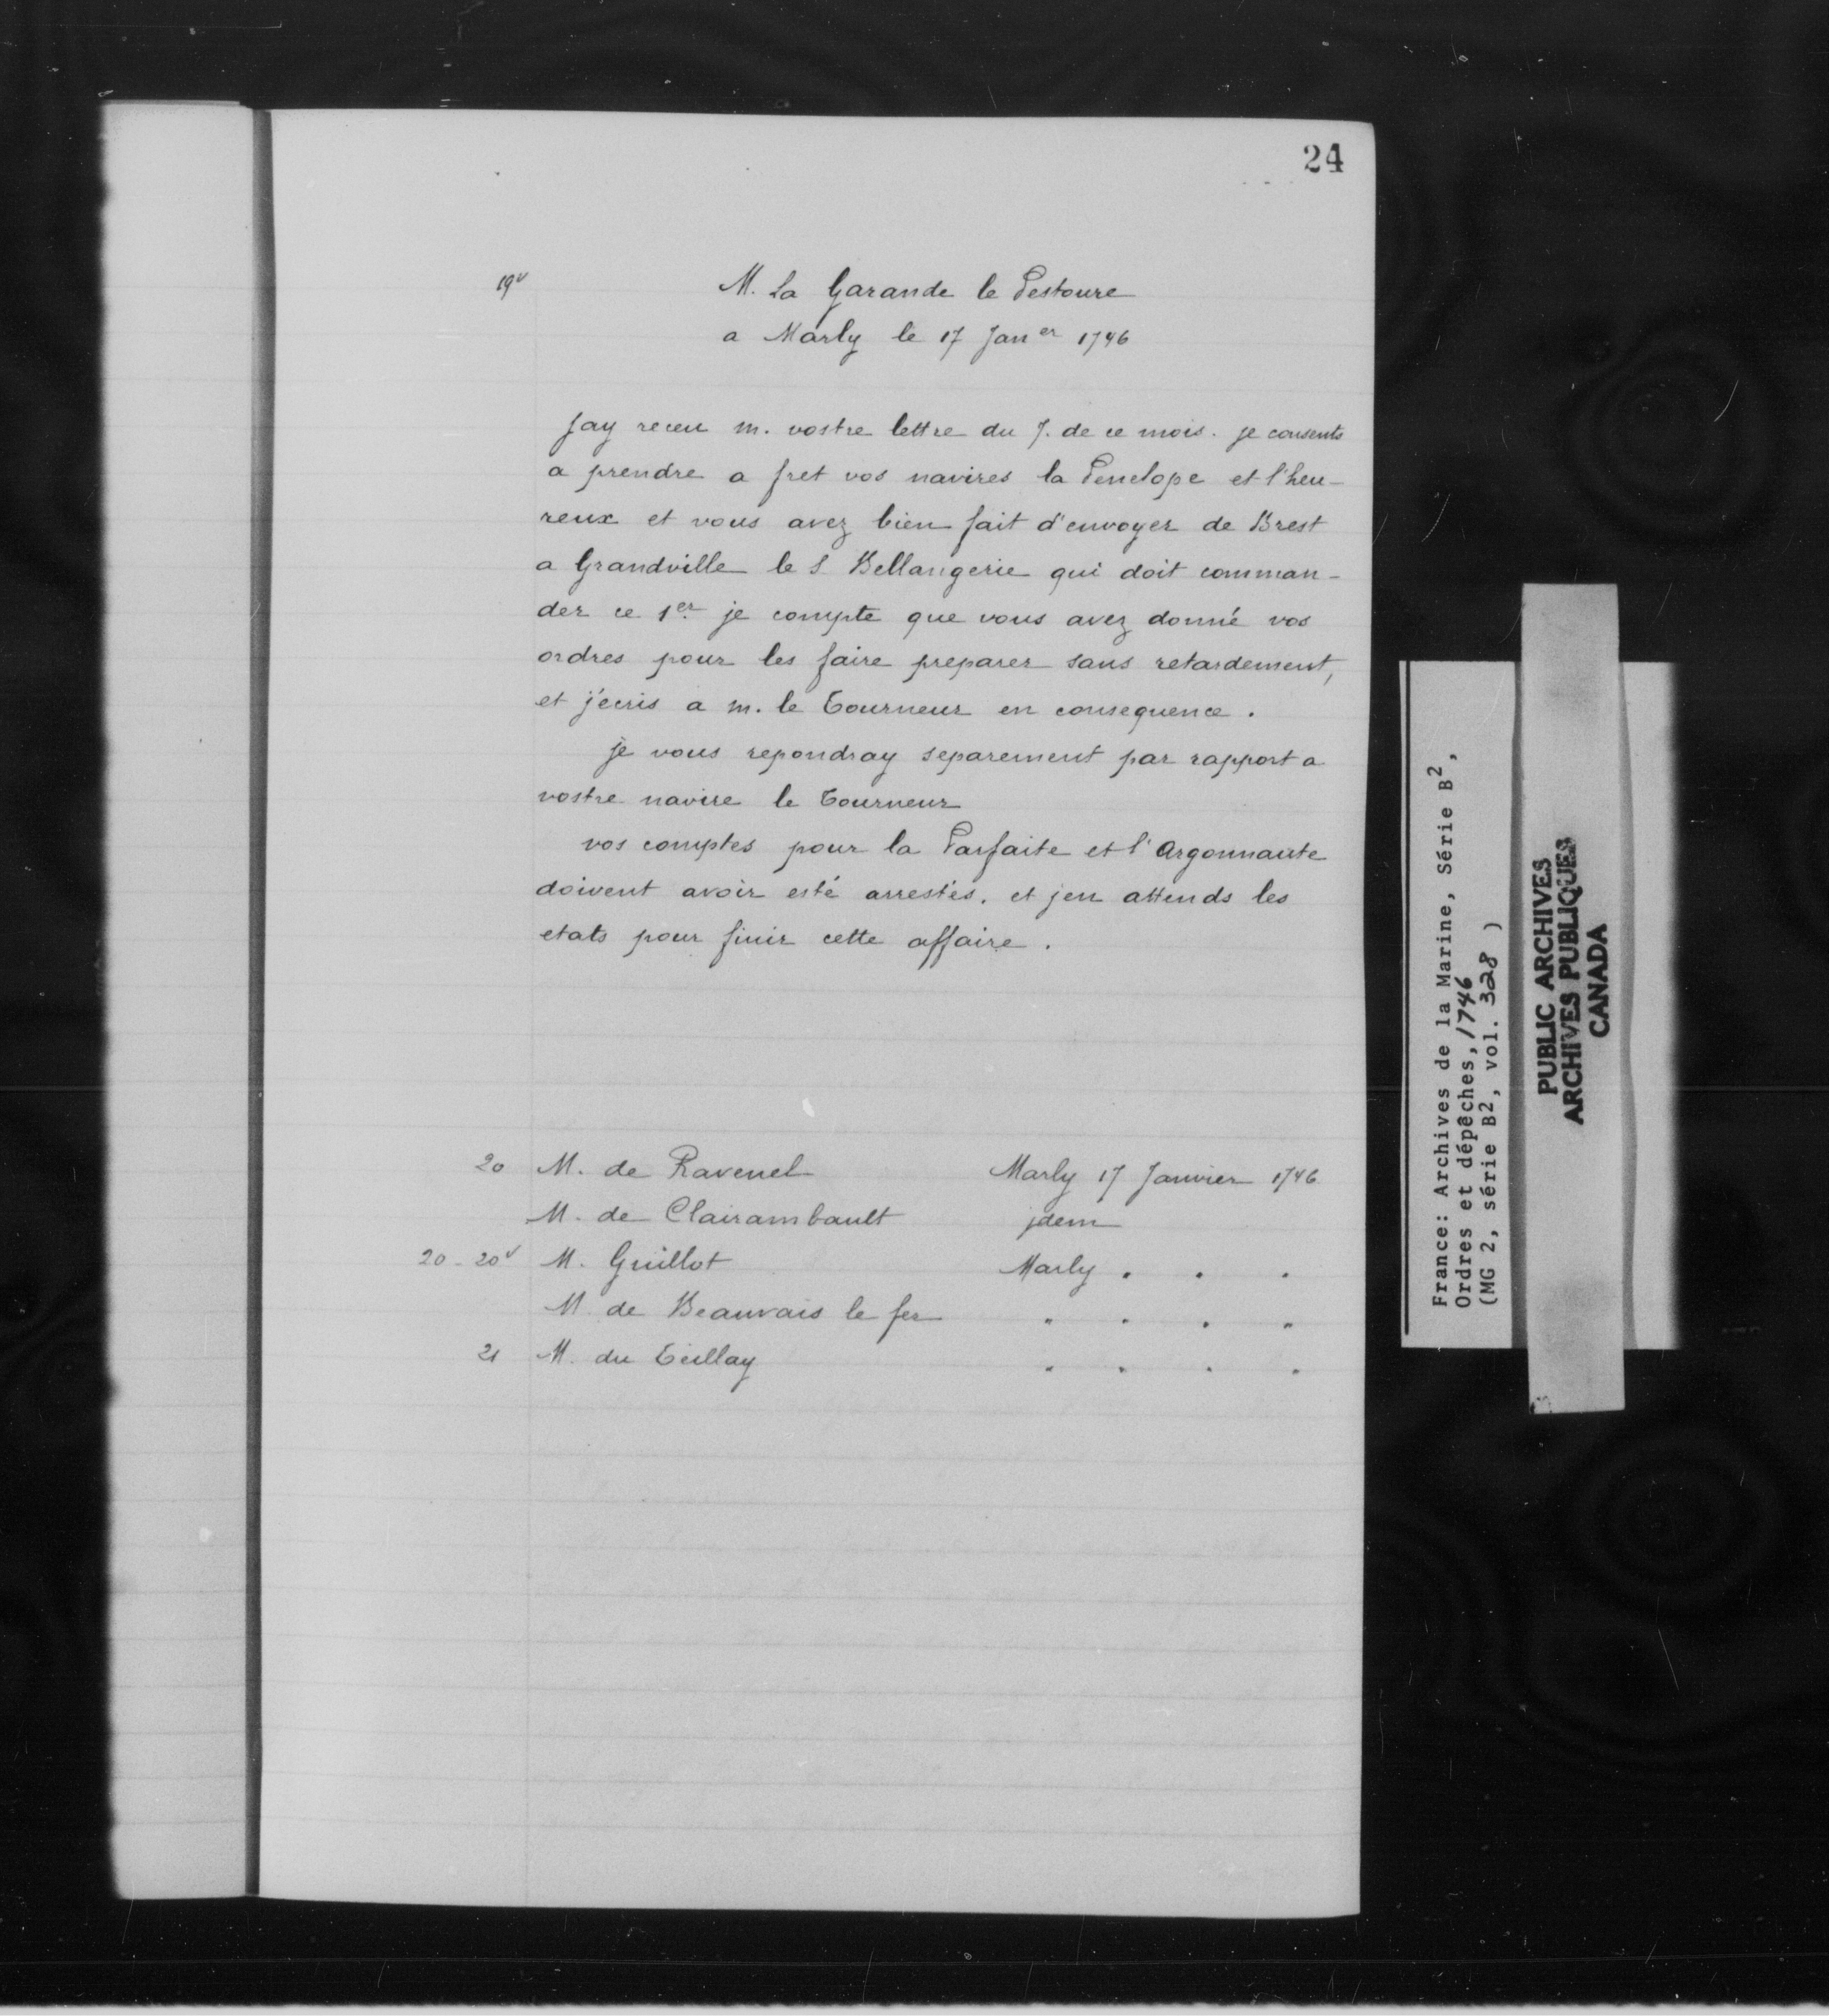 24
19v
M. La Garande le Pestoure
a Marly le 17 Janer 1746
Jay receu m. vostre lettre du 7. de ce mois. je consents
a prendre a fret vos navires la Penelope et l'heu-
reux et vous avez bien fait d'envoyer de Brest
a Grandville le S Bellangerie qui doit comman-
der ce 1er. je compte que vous avez donné vos
ordres pour les faire preparer sans retardement,
et j'écris a m. le Tourneur en consequence.
je vous repondray separement par rapport a
vostre navire le Tourneur
vos comptes pour la Parfaite et l'Argonnaute
doivent avoir esté arrestés. et jen attends les
etats pour finir cette affaire.
20 M. de Ravenel Marly 17 Janvier 1746
M. de Clairambault jdem
20-20v M. Guillot Marly " " "
M. de Beauvais le fer " " " "
21 M. du Teillay " " " "
France: Archives de la Marine, Série B2,
Ordres et dépêches, 1746
(MG 2, série B2, vol. 328 )
PUBLIC ARCHIVES
ARCHIVES PUBLIQUES
CANADA